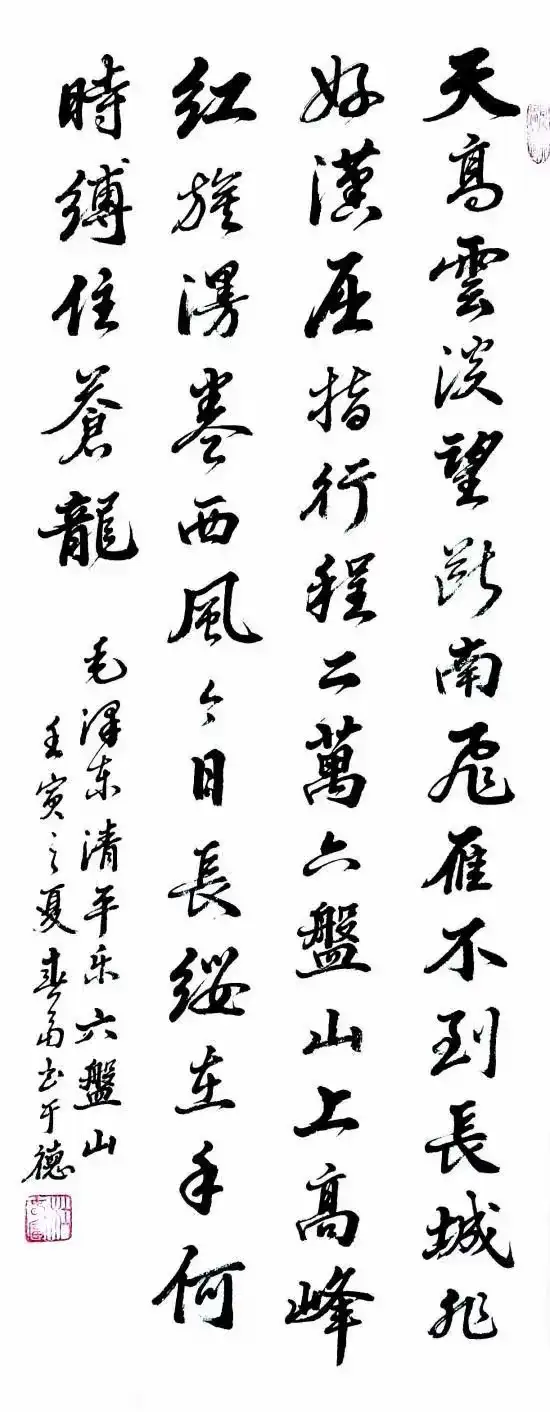 天高雲淡望斷南飛雁不到長城非
好漢屈指行程二萬六盤山上高峰
紅旗漫卷西風今日長纓在手何
時縛住蒼龍
毛泽东清平乐六盤山
壬寅之夏書于德